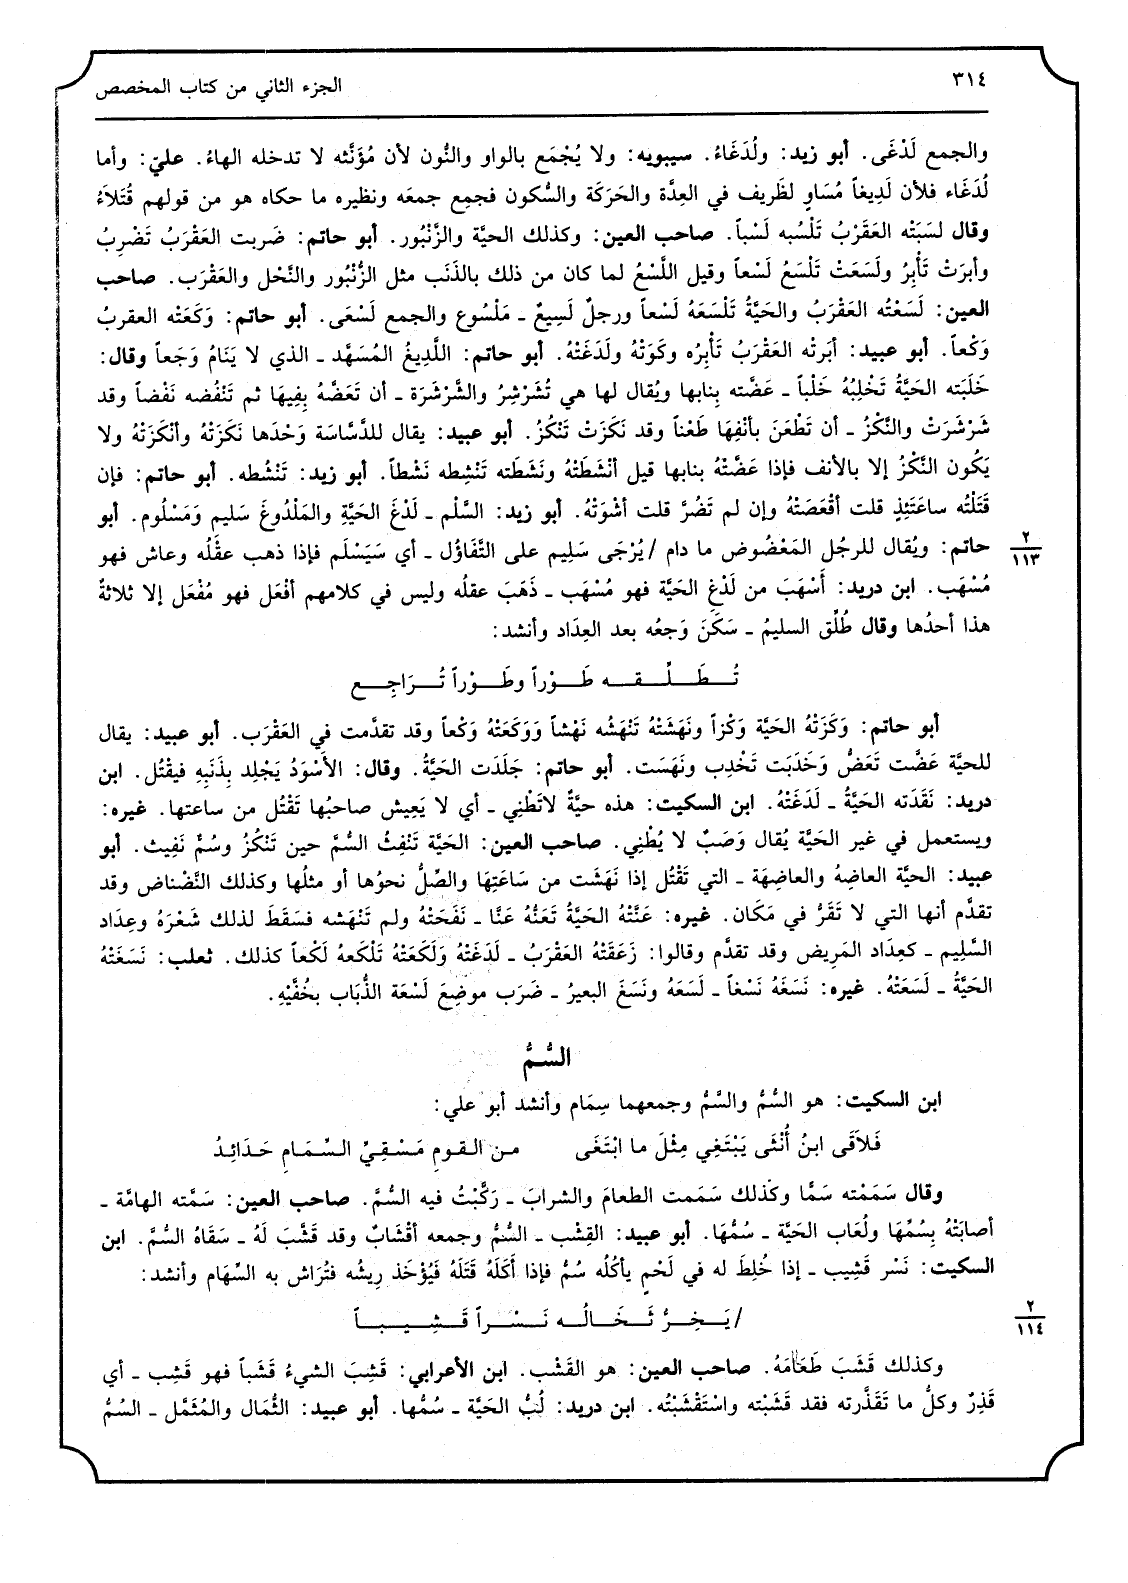 ٣١٤
الجزء الثاني من كتاب المخصص
والجمع لَدْغَى. أبو زيد: ولُدَغَاءُ. سيبويه: ولا يُجْمَع بالواو والنُّون لأن مُؤَنَّثه لا تدخله الهاءُ. عليّ: وأما
لُدَغَاء فلأن لَدِيغاً مُسَاوٍ لظَريف في العِدَّة والحَرَكَة والسُّكون فجمِع جمعَه ونظيره ما حكاه هو من قولهم قُتَلاَءُ
وقال لسَبَتْه العَقْرَبُ تَلْسُبه لَسْباً. صاحب العين: وكذلك الحيَّة والزُّنْبُور. أبو حاتم: ضَربت العَقْرَبُ تَضْرِبُ
وأبرَتْ تَأْبِرُ ولَسَعَتْ تَلْسَعُ لَسْعاً وقيل اللَّسْعُ لما كان من ذلك بالذَنَب مثل الزُّنْبُور والنَّحْل والعَقْرَب. صاحب
العين: لَسَعْتُه العَقْرَبُ والحَيَّةُ تَلْسَعَهُ لَسْعاً ورجلٌ لَسِيعٌ ـ مَلْسُوع والجمع لَسْعَى. أبو حاتم: وَكَعَتْه العقربُ
وَكْعاً. أبو عبيد: أبَرتْه العَقْرَبُ تَأْبِرُه وكَوَتْهُ ولَدَغَتْهُ. أبو حاتم: اللَّدِيغُ المُسَهَّد ـ الذي لا يَنَامُ وَجَعاً وقال:
خَلَبَته الحَيَّةُ تَخْلِبُهُ خَلْباً ـ عَضَّته بِنابها ويُقال لها هي تُشَرْشِرُ والشَّرْشَرَة ـ أن تَعَضَّهُ بِفِيهَا ثم تَنْفُضه نَفْضاً وقد
شَرْشَرَتْ والنَّكْزُ ـ أن تَطْعَنَ بأنْفِهَا طَعْناً وقد نَكَزَتْ تَنْكُزُ. أبو عبيد: يقال للدَّسَّاسَة وَحْدَها نَكَزَتْهُ وأنْكَزَتْهُ ولا
يَكُون النَّكْزُ إلا بالأنف فإذا عَضَّتْهُ بنابها قيل أنْشَطَتْهُ ونَشَطَته تَنْشِطه نَشْطاً. أبو زيد: تَنْشُطه. أبو حاتم: فإن
قَتَلْتُه ساعَتَئِذٍ قلت أقْعَصَتْهُ وإن لم تَضُرَّ قلت أشْوَتْهُ. أبو زيد: السَّلْم ـ لَدْغَ الحَيَّةِ والمَلْدُوغَ سَليم وَمَسْلُوم. أبو
٢
١١٣
حاتم: ويُقال للرجُل المَعْضُوض ما دام /يُرْجَى سَلِيم على التَّفَاؤُل ـ أي سَيَسْلَم فإذا ذهب عقْلُه وعاش فهو
مُسْهَب. ابن دريد: أَسْهَبَ من لَدْغِ الحَيَّة فهو مُسْهَب ـ ذَهَبَ عقلُه وليس في كلامهم أفْعَل فهو مُفْعَل إلا ثلاثةً
هذا أحدُها وقال طُلِّق السليمُ ـ سَكَنَ وَجعُه بعد العِدَاد وأنشد:
تُـــطَـــلِّـــقـــه طَـــوْراً وطَـــوْراً تُـــرَاجِـــع
أبو حاتم: وَكَزَتْهُ الحَيَّة وَكْزاً ونَهَشَتْهُ تَنْهَشُه نَهْشاً وَوَكَعَتْهُ وَكْعاً وقد تقدَّمت في العَقْرَب. أبو عبيد: يقال
للحيَّة عَضَّت تَعَضُّ وَخَدَبَت تَخْدِب ونَهَسَت. أبو حاتم: جَلَدَت الحَيَّةُ. وقال: الأَسْوَدُ يَجْلِد بِذَنَبِهِ فيقْتُل. ابن
دريد: نَقَدَته الحَيَّةُ ـ لَدَغَتْهُ. ابن السكيت: هذه حيَّةٌ لاتَطْنِي ـ أي لا يَعِيش صاحبُها تَقْتُل من ساعتها. غيره:
ويستعمل في غير الحَيَّة يُقال وَصَبٌ لا يُطْنِي. صاحب العين: الحَيَّة تَنْفِثُ السُّمَّ حين تَنْكُزُ وسُمٌّ نَفِيث. أبو
عبيد: الحيَّة العاضِهُ والعاضِهَة ـ التي تَقْتُل إذا نَهَشَت من سَاعَتِهَا والصِّلُّ نحوُها أو مثلُها وكذلك النَّضْناض وقد
تقدَّم أنها التي لا تَقَرُّ في مَكَان. غيره: عَنَّتْهُ الحَيَّةُ تَعَنُّهُ عَنًّا ـ نَفَحَتْهُ ولم تَنْهَشه فسَقَطَ لذلك شَعْرَهُ وعِدَاد
السَّلِيم ـ كعِدَاد المَريض وقد تقدَّم وقالوا: زَعَقَتْهُ العَقْرَبُ ـ لَدَغَتْهُ وَلَكَعَتْهُ تَلْكَعهُ لَكْعاً كذلك. ثعلب: نَسَغَتْهُ
الحَيَّةُ ـ لَسَعَتْهُ. غيره: نَسَغَهُ نَسْغاً ـ لَسَعَهُ ونَسَغَ البعيرُ ـ ضَرَب موضِعَ لَسْعَة الذُّبَاب بخُفَّيْهِ.
السُّمُّ
ابن السكيت: هو السُّمُّ والسَّمُّ وجمعهما سِمَام وأنشد أبو علي:
فَلاَقَى ابنُ أُنْثَى يَبْتَغِي مِثْلَ ما ابْتَغَى من القومِ مَسْقِيِّ السِّمَامِ حَدَائِدُ
وقال سَمَمْته سَمًّا وكَذلك سَمَمت الطعامَ والشرابَ ـ رَكَّبْتُ فيه السُّمَّ. صاحب العين: سَمَّته الهامَّة ـ
أصابَتْهُ بِسُمِّهَا ولُعَاب الحَيَّة ـ سُمُّهَا. أبو عبيد: القِشْب ـ السُّمُّ وجمعه أقْشَابٌ وقد قَشَّبَ لَهُ ـ سَقَاهُ السُّمَّ. ابن
السكيت: نَسْر قَشِيب ـ إذا خُلِطَ له في لَحْمٍ يأكُلُه سُمُّ فإذا أَكَلَهُ قَتَلَهُ فَيُؤْخَذ رِيشُه فتُرَاش به السِّهَام وأنشد:
٢
١١٤
/يَـــخِـــرُّ تَـــخَـــالُـــه نَـــسْـــراً قَـــشِـــيـــبـــاً
وكذلك قَشَبَ طَعَامَهُ. صاحب العين: هو القَشْب. ابن الأعرابي: قَشِبَ الشيءُ قَشَباً فهو قَشِب ـ أي
قَذِرٌ وكلُّ ما تَقَذَّرته فقد قَشَبْته واسْتَقْشَبْتُه. ابن دريد: لُبُّ الحَيَّة ـ سُمُّها. أبو عبيد: الثُّمَال والمُثَمَّل ـ السُّمُ